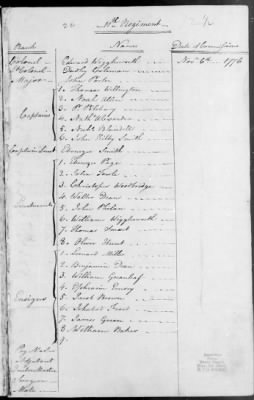 Regiment
Rank
Names
Date of Commissions
Colonel
Edward Wigglesworth
Nov. 6th 1776
Lt Colonel
Dudley Coleman
Major
John Porter
Captains
1. Thomas Willington
2. Noah Allen
3.
4. Nathl Alexander
5. Nathl
6. John Kilby Smith
Captain Lieut
Ebenezer Smith
Lieutenants
1. Ebenezr Page
2. John Fowle
3. Christopher Woodbridge
4. Walter Dean
5. John Phelan
6. William Wigglesworth
7. Thomas Smart
8. Oliver Hunt
Ensigns
1. Lemuel Mills
2. Benjamin Dean
3. William Greenleaf
4. Ephraim Emery
5. Jacob Brown
6. Frost
7. James Green
8. William Baker
9.
Pay Master
Adjutant
Quarter Master
Surgeon
Mate